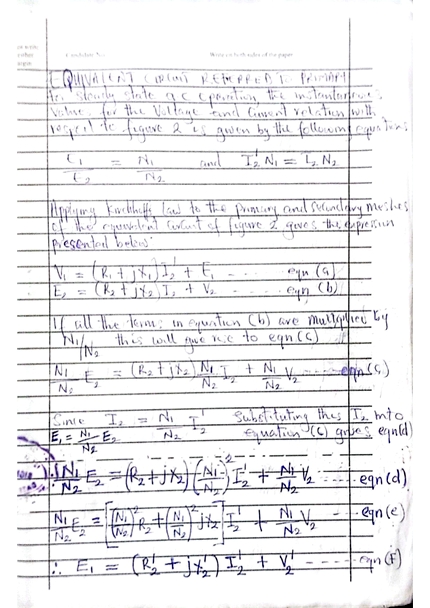 Candidate No.
Write on both sides of the paper
EQUIVALENT CIRCUIT REFERRED TO PRIMARY
For steady state a.c operation, the instantaneous
value for the Voltage and Current relation with
respect to figure 2 is given by the following equations;
E₁/E₂ = N₁/N₂ and I₂' N₁ = I₂ N₂
Applying Kirchhoffs law to the primary and secondary meshes
of the equivalent circuit of figure 2 gives the expression
presented below:
V₁ = (R₁ + jX₁) I₂' + E₁ ---- eqn (a)
E₂ = (R₂ + jX₂) I₂ + V₂ ---- eqn (b)
If all the terms in equation (b) are multiplied by
N₁/N₂ this will give rise to eqn (c)
N₁/N₂ E₂ = (R₂ + jX₂) N₁/N₂ I₂ + N₁/N₂ V₂ ------ eqn (c)
Since I₂ = N₁/N₂ I₂' Substituting this I₂ into
E₁ = N₁/N₂ E₂ equation (c) gives eqn(d)
N₁/N₂ E₂ = (R₂ + jX₂) (N₁/N₂)² I₂' + N₁/N₂ V₂ ---- eqn (d)
N₁/N₂ E₂ = [(N₁/N₂)² R₂ + (N₁/N₂)² jX₂] I₂' + N₁/N₂ V₂ ---- eqn (e)
∴ E₁ = (R₂' + jX₂') I₂' + V₂' ----- eqn (f)